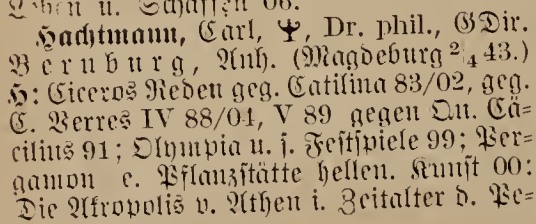 Leben u. Schaffen 06.
Hachtmann, Carl, Ψ, Dr. phil., GDir.
Bernburg, Anh. (Magdeburg 2/4 43.)
H: Ciceros Reden geg. Catilina 83/02, geg.
C. Verres IV 88/01, V 89 gegen Qu. Cä=
cilius 91; Olympia u. s. Festspiele 99; Per=
gamon e. Pflanzstätte hellen. Kunst 00:
Die Akropolis v. Athen i. Zeitalter d. Pe=